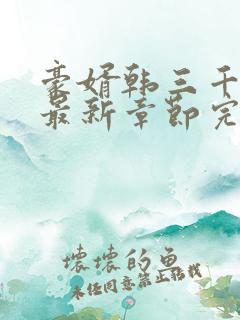 豪婿韩三千
最新章节完
坏坏的鱼
未经同意禁止转载